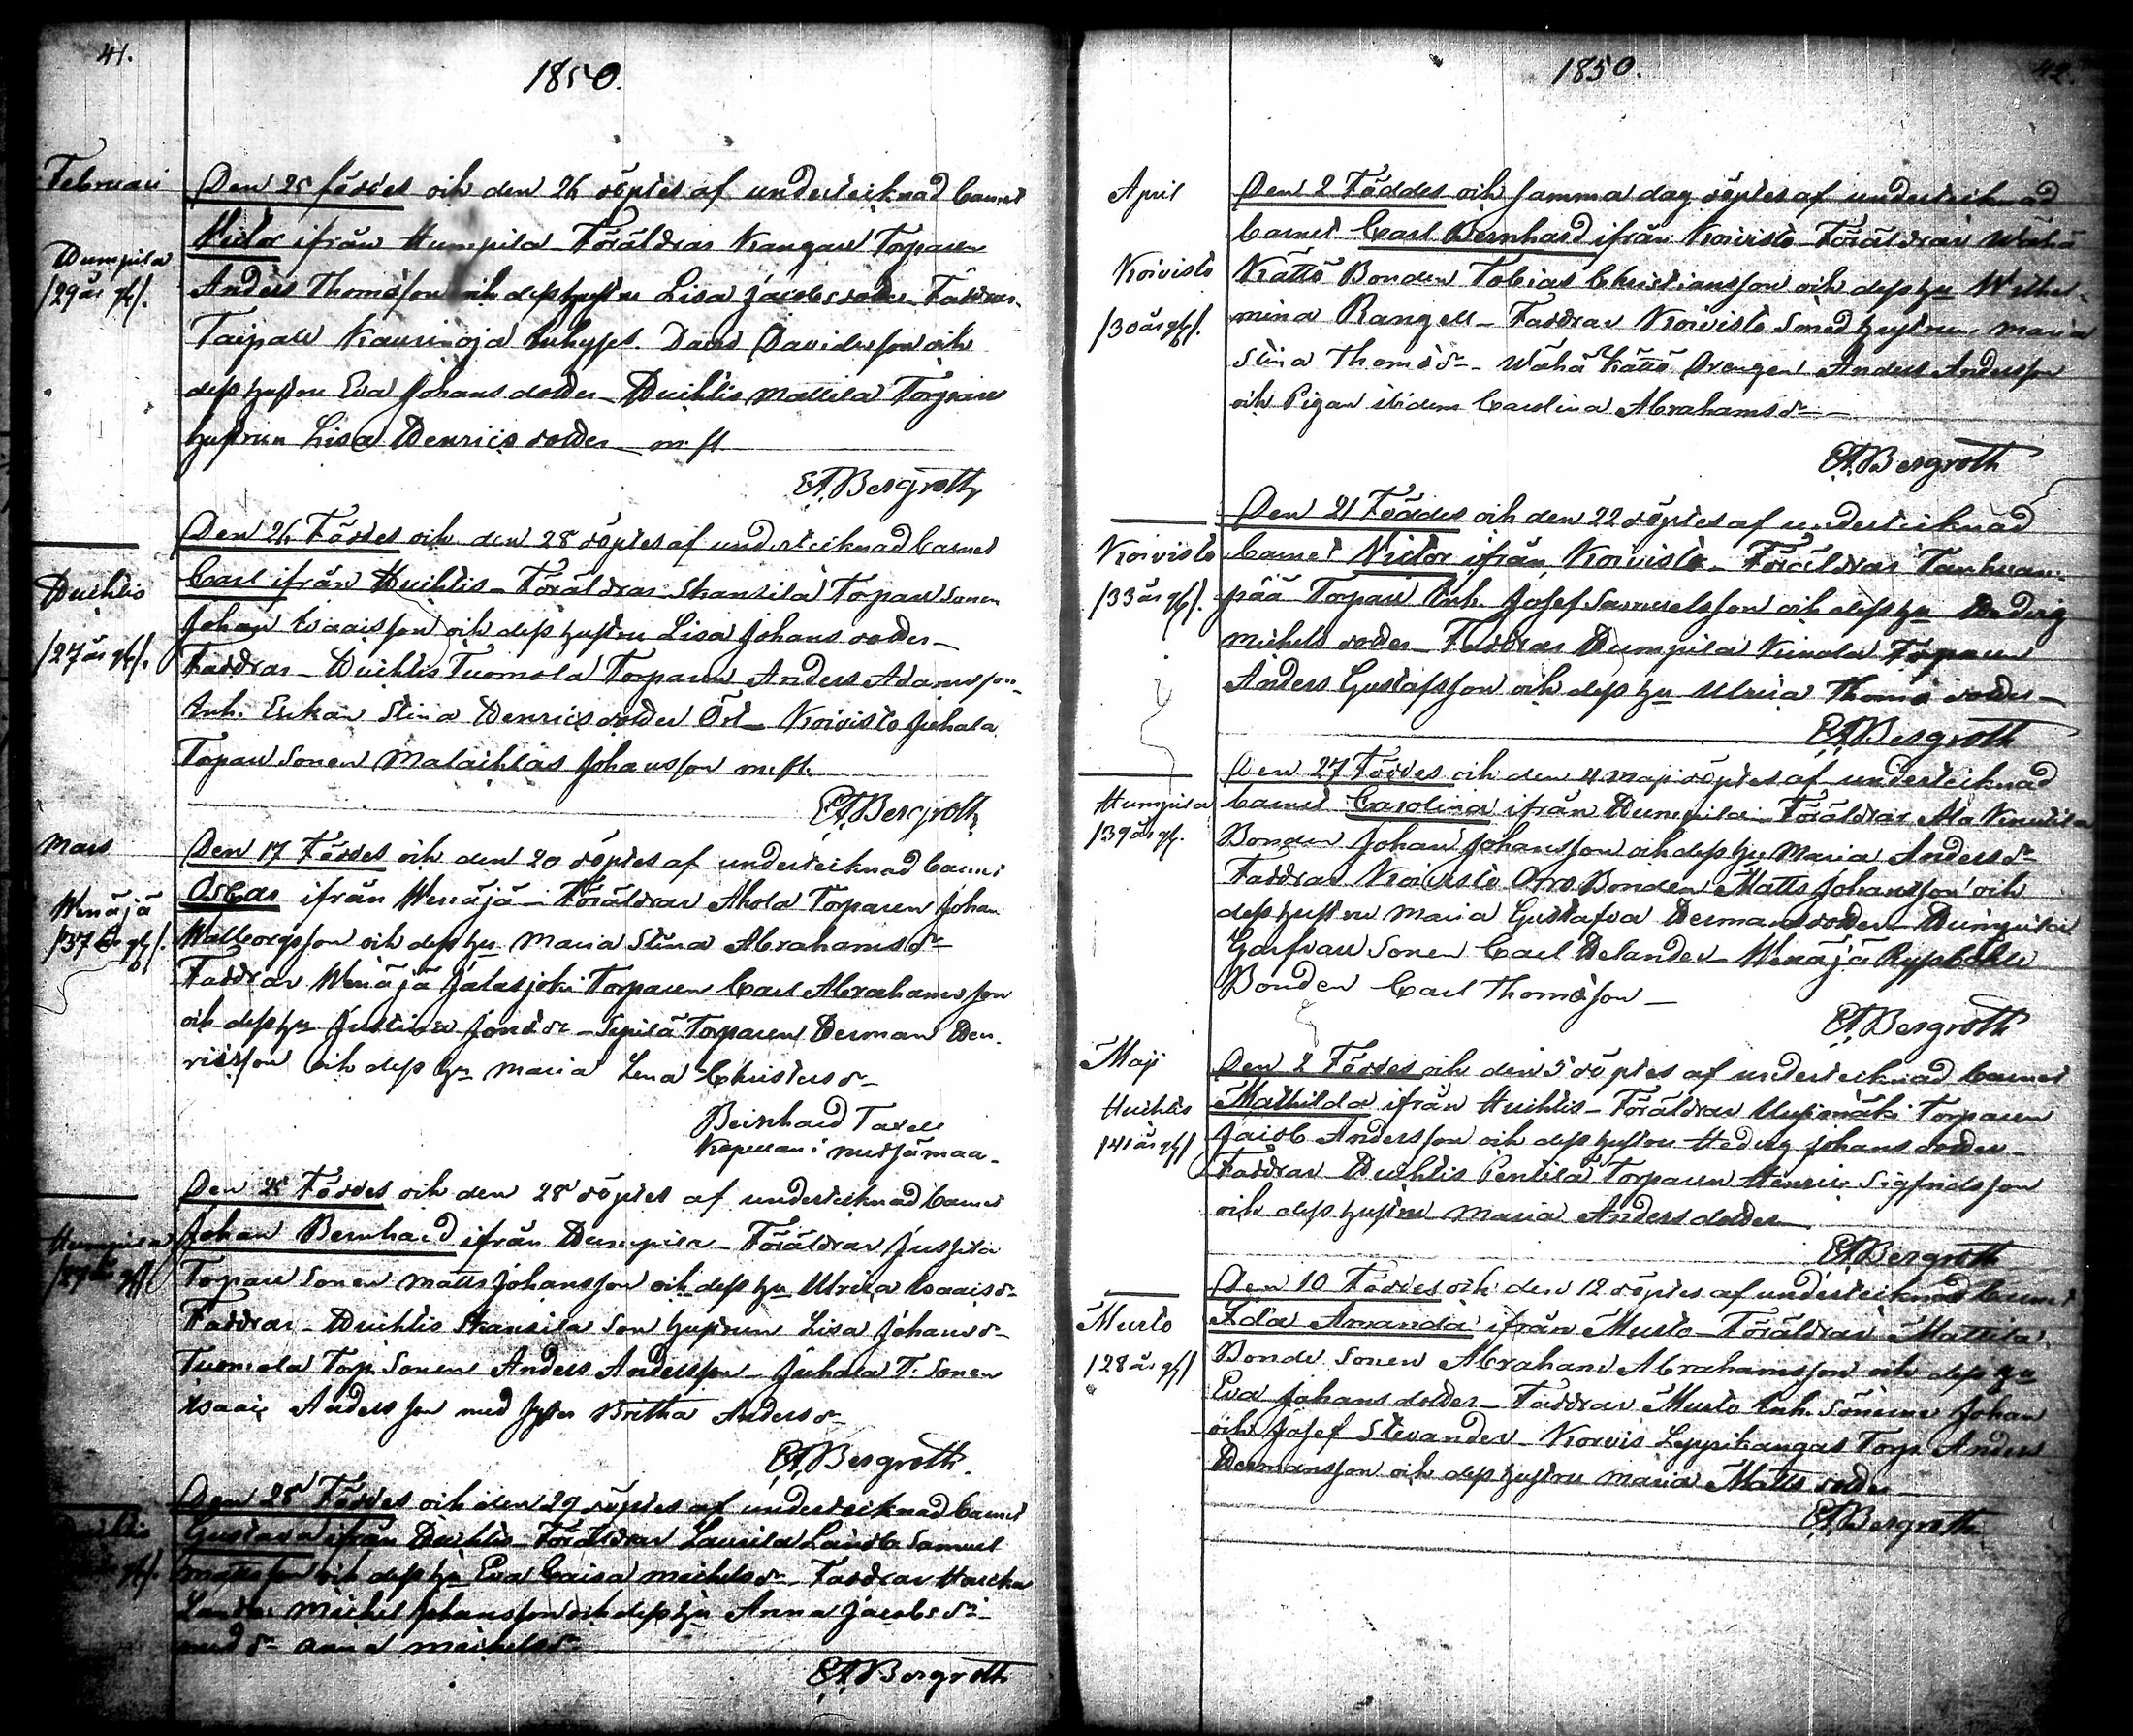 41.
1850.
Februari
Den 25 föddes och den 26 döptes af undertecknad barnet
Victor ifrån Humpila Föräldrar Kangas Torparen
Humpila
Anders Thomasson och dess hustru Lisa Jacobsdotter Faddrar
/29 år gl/.
Taipale Kaurinoja Inhyses. David Davidsson och
dess hustru Eva Johansdotter – Huihtis Mattila Torpare
hustrun Lisa Henricsdotter m. fl
EABergroth
Den 26 Föddes och den 28 döptes af undertecknad barnet
Carl ifrån Huihtis – Föräldrar Skansila Torpare Sonen
Huihtis
Johan Isaacsson och dess hustru Lisa Johansdotter –
/27 år gl/.
Faddrar – Huihtis Tuomola Torparen Anders Adamsson
Inh. Enkan Stina Henricsdotter Öst – Koivisto Juhala
Torpare Sonen Malachias Johansson m. fl.
EABergroth
Mars
Den 17 Föddes och den 20 döptes af undertecknad barnet
Oscar ifrån Wenäjä – Föräldrar Ahola Torparen Johan
Wenäjä
Walborgsson och dess hu Maria Stina Abrahamsdr
/37 år gl/.
Faddrar Wenäjä Jalasjoki Torparen Carl Abrahamsson
och dess hu Justina Jonsdr – Sepilä Torparen Herman Hen-
ricsson och dess hu Maria Lena Christersdr
Bernhard Taxell
Kapellan i Mietsämaa
Den 25 Föddes och den 28 döptes af undertecknad barnet
Johan Bernhard ifrån Humpila – Föräldrar Jussila
Humpila
Torpare Sonen Matts Johansson och dess hu Ulrica Isaacsdr
Faddrar – Huihtis Skansila Son hustrun Lisa Johansdr
Tuomola Torp. Sonen Anders Andersson – Juhala T. Sonen
Isaac Andersson med syster Britha Andersdr
EABergroth.
Den 28 Föddes och den 29 döptes af undertecknad barnet
Gustava ifrån Huihtis – Föräldrar Laurila Landb. Samuel
Huihtis
Mattsson och dess hu Eva Caisa Michelsdr – Faddrar
Michel Johansson och dess hu Anna Jacobsdr
med dr Anna Michelsdr
EABergroth
1850.
42.
April
Den 2 Föddes och samma dag döptes af undertecknad
barnet Carl Bernhard ifrån Koivisto – Föräldrar Wähä
Koivisto
Kättö Bonden Tobias Christiansson och dess hu Wilhel-
/30 år gl/.
mina Rangell – Faddrar Koivisto Smed hustrun Maria
Stina Thomasdr – Wähä Kättö Drengen Anders Andersson
och Pigan ibidem Carolina Abrahamsdr –
EABergroth
Den 21 Föddes och den 22 döptes af undertecknad
Koivisto
barnet Victor ifrån Koivisto – Föräldrar Tanhuan-
/33 år gl/.
pää Torpare Inh. Josef Samuelsson och dess hu Hedvig
Michelsdotter – Faddrar Humpila Torparen
Anders Gustafsson och dess hu Ulrica Thomasdotter –
EABergroth
Den 27 Föddes och den 4 Maji döptes af undertecknad
Humpila
barnet Carolina ifrån Humpila – Föräldrar Ala Knuutila
/39 år gl/.
Bonden Johan Johansson och dess hu Maria Andersdr
Faddrar Koivisto Orro Bonden Matts Johansson och
dess hustru Maria Gustafva Hermansdotter – Humpila
Sonen Carl Helander – Wenäjä
Bonden Carl Thomasson –
EABergroth
Maji
Den 2 Föddes och den 5 döptes af undertecknad barnet
Huihtis
Mathilda ifrån Huihtis – Föräldrar Uusimäki Torparen
/41 år gl/
Jacob Andersson och dess hustru Hedvig Johansdotter –
Faddrar Huihtis Pentilä Torparen Henric Sigfridsson
och dess hustru Maria Andersdotter
EABergroth
Den 10 Föddes och den 12 döptes af undertecknad barnet
Murto
Ida Amanda ifrån Murto – Föräldrar Mattila
/28 år gl/
Bonde Sonen Abraham Abrahamsson och dess hu
Eva Johansdotter – Faddrar Murto Inh. Sönerne Johan
och Josef Stevander – Korvis Leppikangas Torp. Anders
Hermansson och dess hustru Maria Mattsdotter
EABergroth